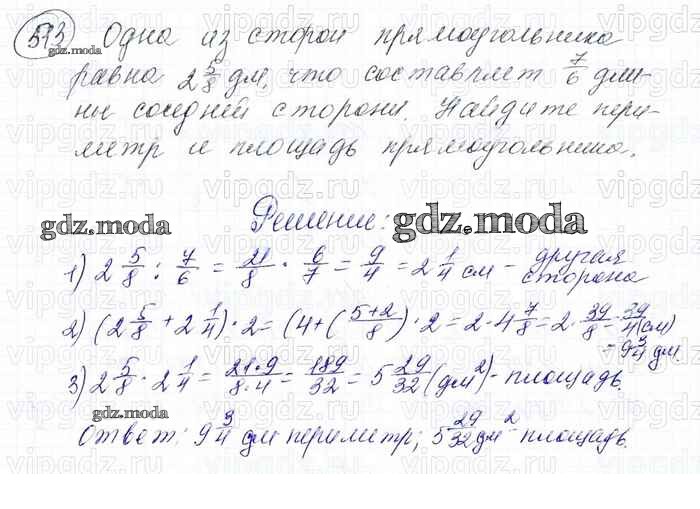 593 Одна из сторон прямоугольника
gdz.moda
равна 2 5/8 дм, что составляет 7/6 дли-
ны соседней стороны. Найдите пери-
метр и площадь прямоугольника.
Решение:
gdz.moda
gdz.moda
1) 2 5/8 : 7/6 = 21/8 · 6/7 = 9/4 = 2 1/4 см - другая
сторона
2) (2 5/8 + 2 1/4) · 2 = (4 + (5+2/8) · 2 = 2 · 4 7/8 = 2 · 39/8 = 39/4 (см)
= 9 3/4 дм.
3) 2 5/8 · 2 1/4 = 21·9/8·4 = 189/32 = 5 29/32 (дм²) - площадь.
gdz.moda
Ответ: 9 3/4 дм периметр; 5 29/32 дм² - площадь.
vipgdz.ru